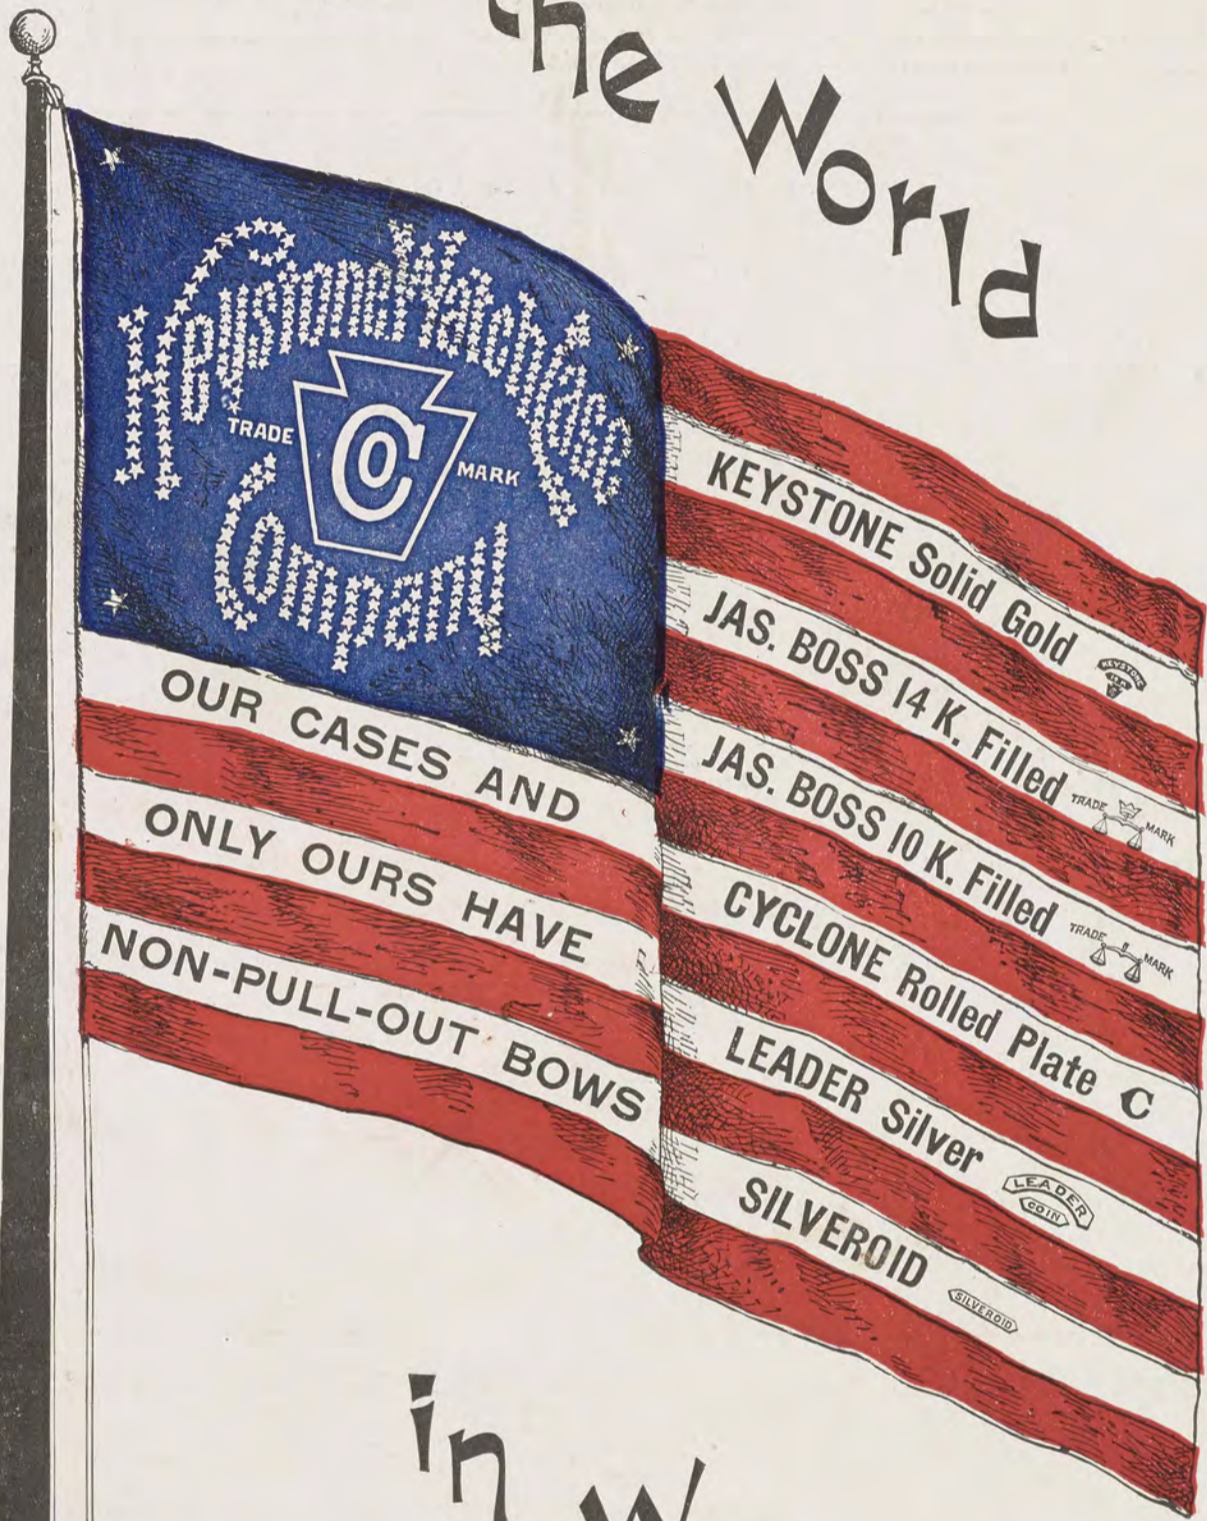 the World
Keystone Watch Case
TRADE
CO
MARK
Company
OUR CASES AND
ONLY OURS HAVE
NON-PULL-OUT BOWS
KEYSTONE Solid Gold
KEYSTONE
JAS. BOSS 14 K. Filled
TRADE MARK
JAS. BOSS 10 K. Filled
TRADE MARK
CYCLONE Rolled Plate C
LEADER Silver
LEADER
COIN
SILVEROID
SILVEROID
in W